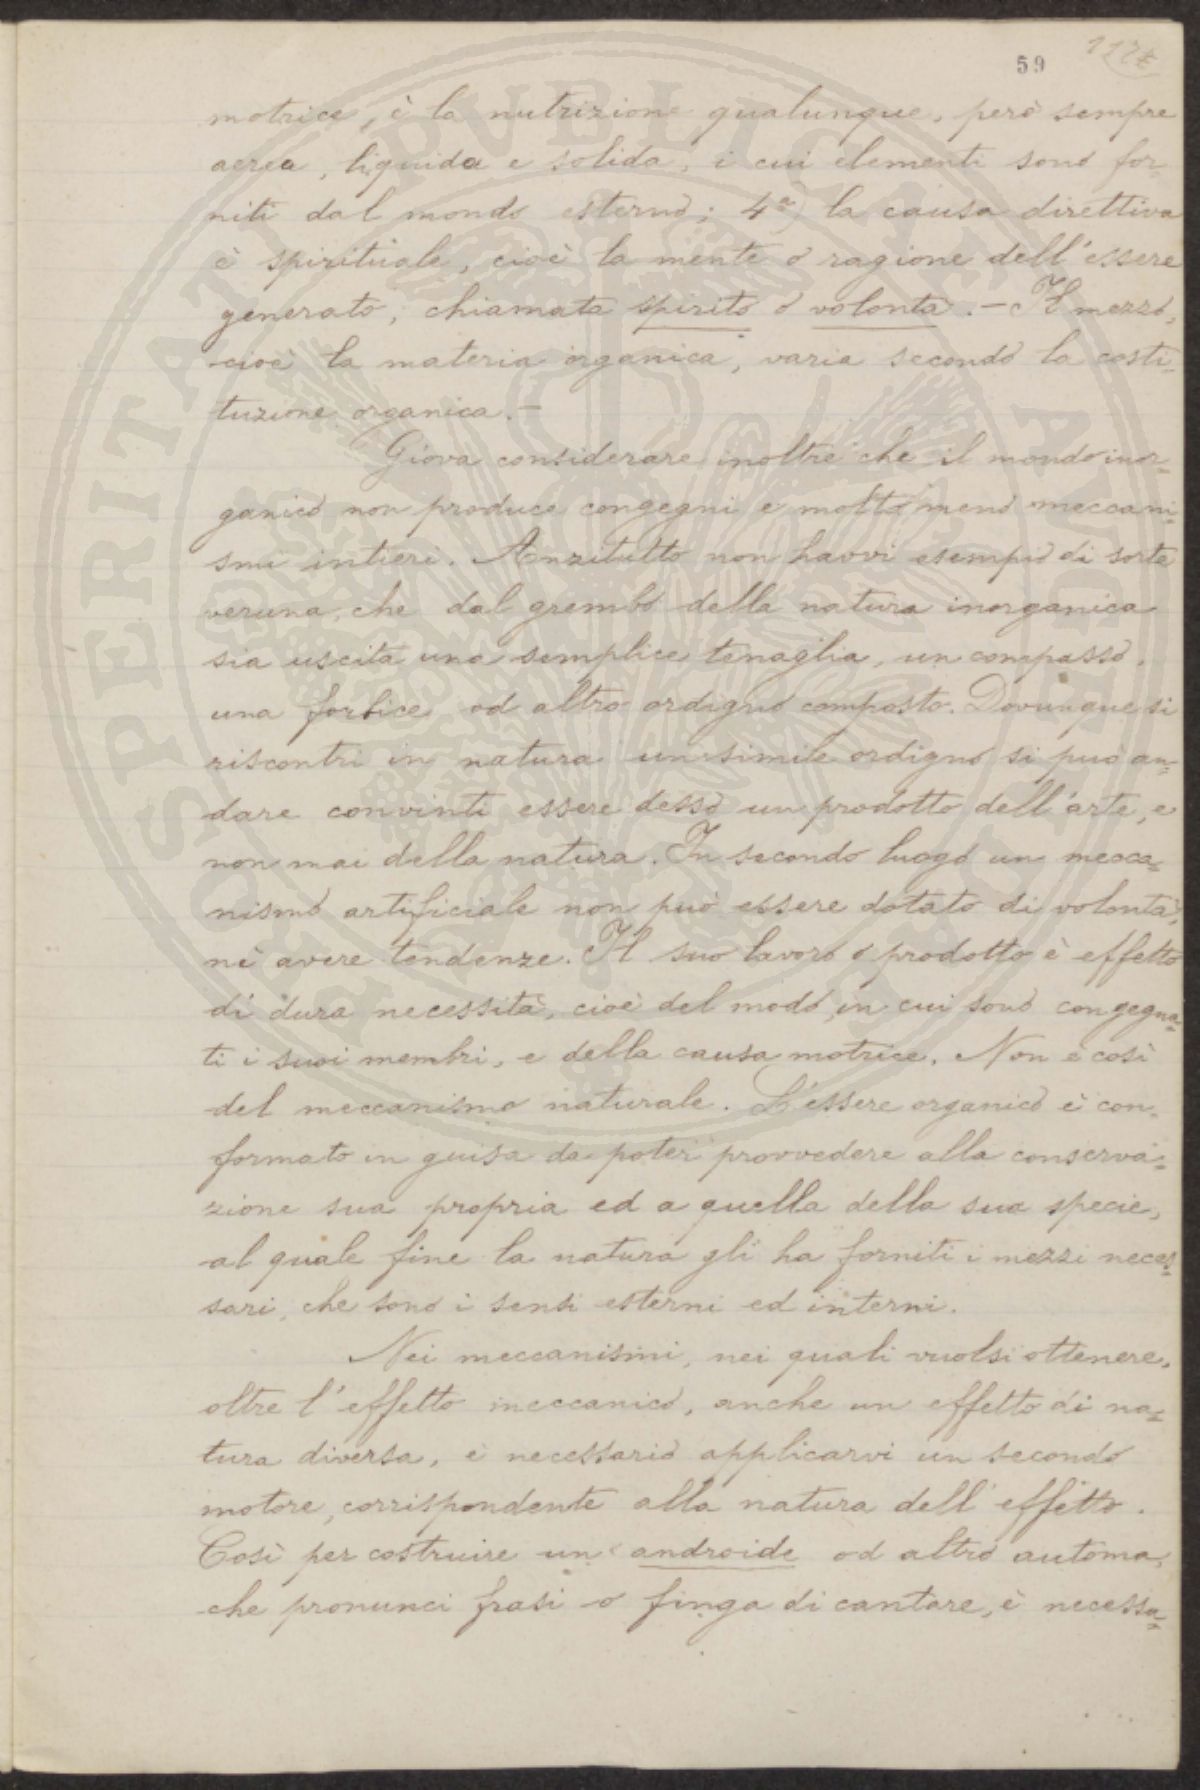 59
motrice, è la nutrizione qualunque, però sempre
aerea, liquida e solida, i cui elementi sono for-
niti dal mondo esterno; 4ª) la causa direttiva
è spirituale, cioè la mente o ragione dell'essere
generato, chiamata spirito o volontà. - Il mezzo,
cioè la materia organica, varia secondo la costi-
tuzione organica. -
Giova considerare inoltre che il mondo inor-
ganico non produce congegni e molto meno meccani-
smi intieri. Anzitutto non havvi esempio di sorta
veruna, che dal grembo della natura inorganica
sia uscita una semplice tenaglia, un compasso,
una forbice od altro ordigno composto. Dovunque si
riscontri in natura un simile ordigno si può an-
dare convinti essere desso un prodotto dell'arte, e
non mai della natura. In secondo luogo un mecca-
nismo artificiale non può essere dotato di volontà,
nè avere tendenze. Il suo lavoro o prodotto è effetto
di dura necessità, cioè del modo, in cui sono congegna-
ti i suoi membri, e della causa motrice. Non è così
del meccanismo naturale. L'essere organico è con-
formato in guisa da poter provvedere alla conserva-
zione sua propria ed a quella della sua specie,
al quale fine la natura gli ha forniti i mezzi neces-
sari, che sono i sensi esterni ed interni.
Nei meccanismi, nei quali vuolsi ottenere,
oltre l'effetto meccanico, anche un effetto di na-
tura diversa, è necessario applicarvi un secondo
motore, corrispondente alla natura dell'effetto.
Così per costruire un androide od altro automa,
che pronunci frasi o finga di cantare, è necessa-
PROSPERITATI PVBLICAE AVGENDAE